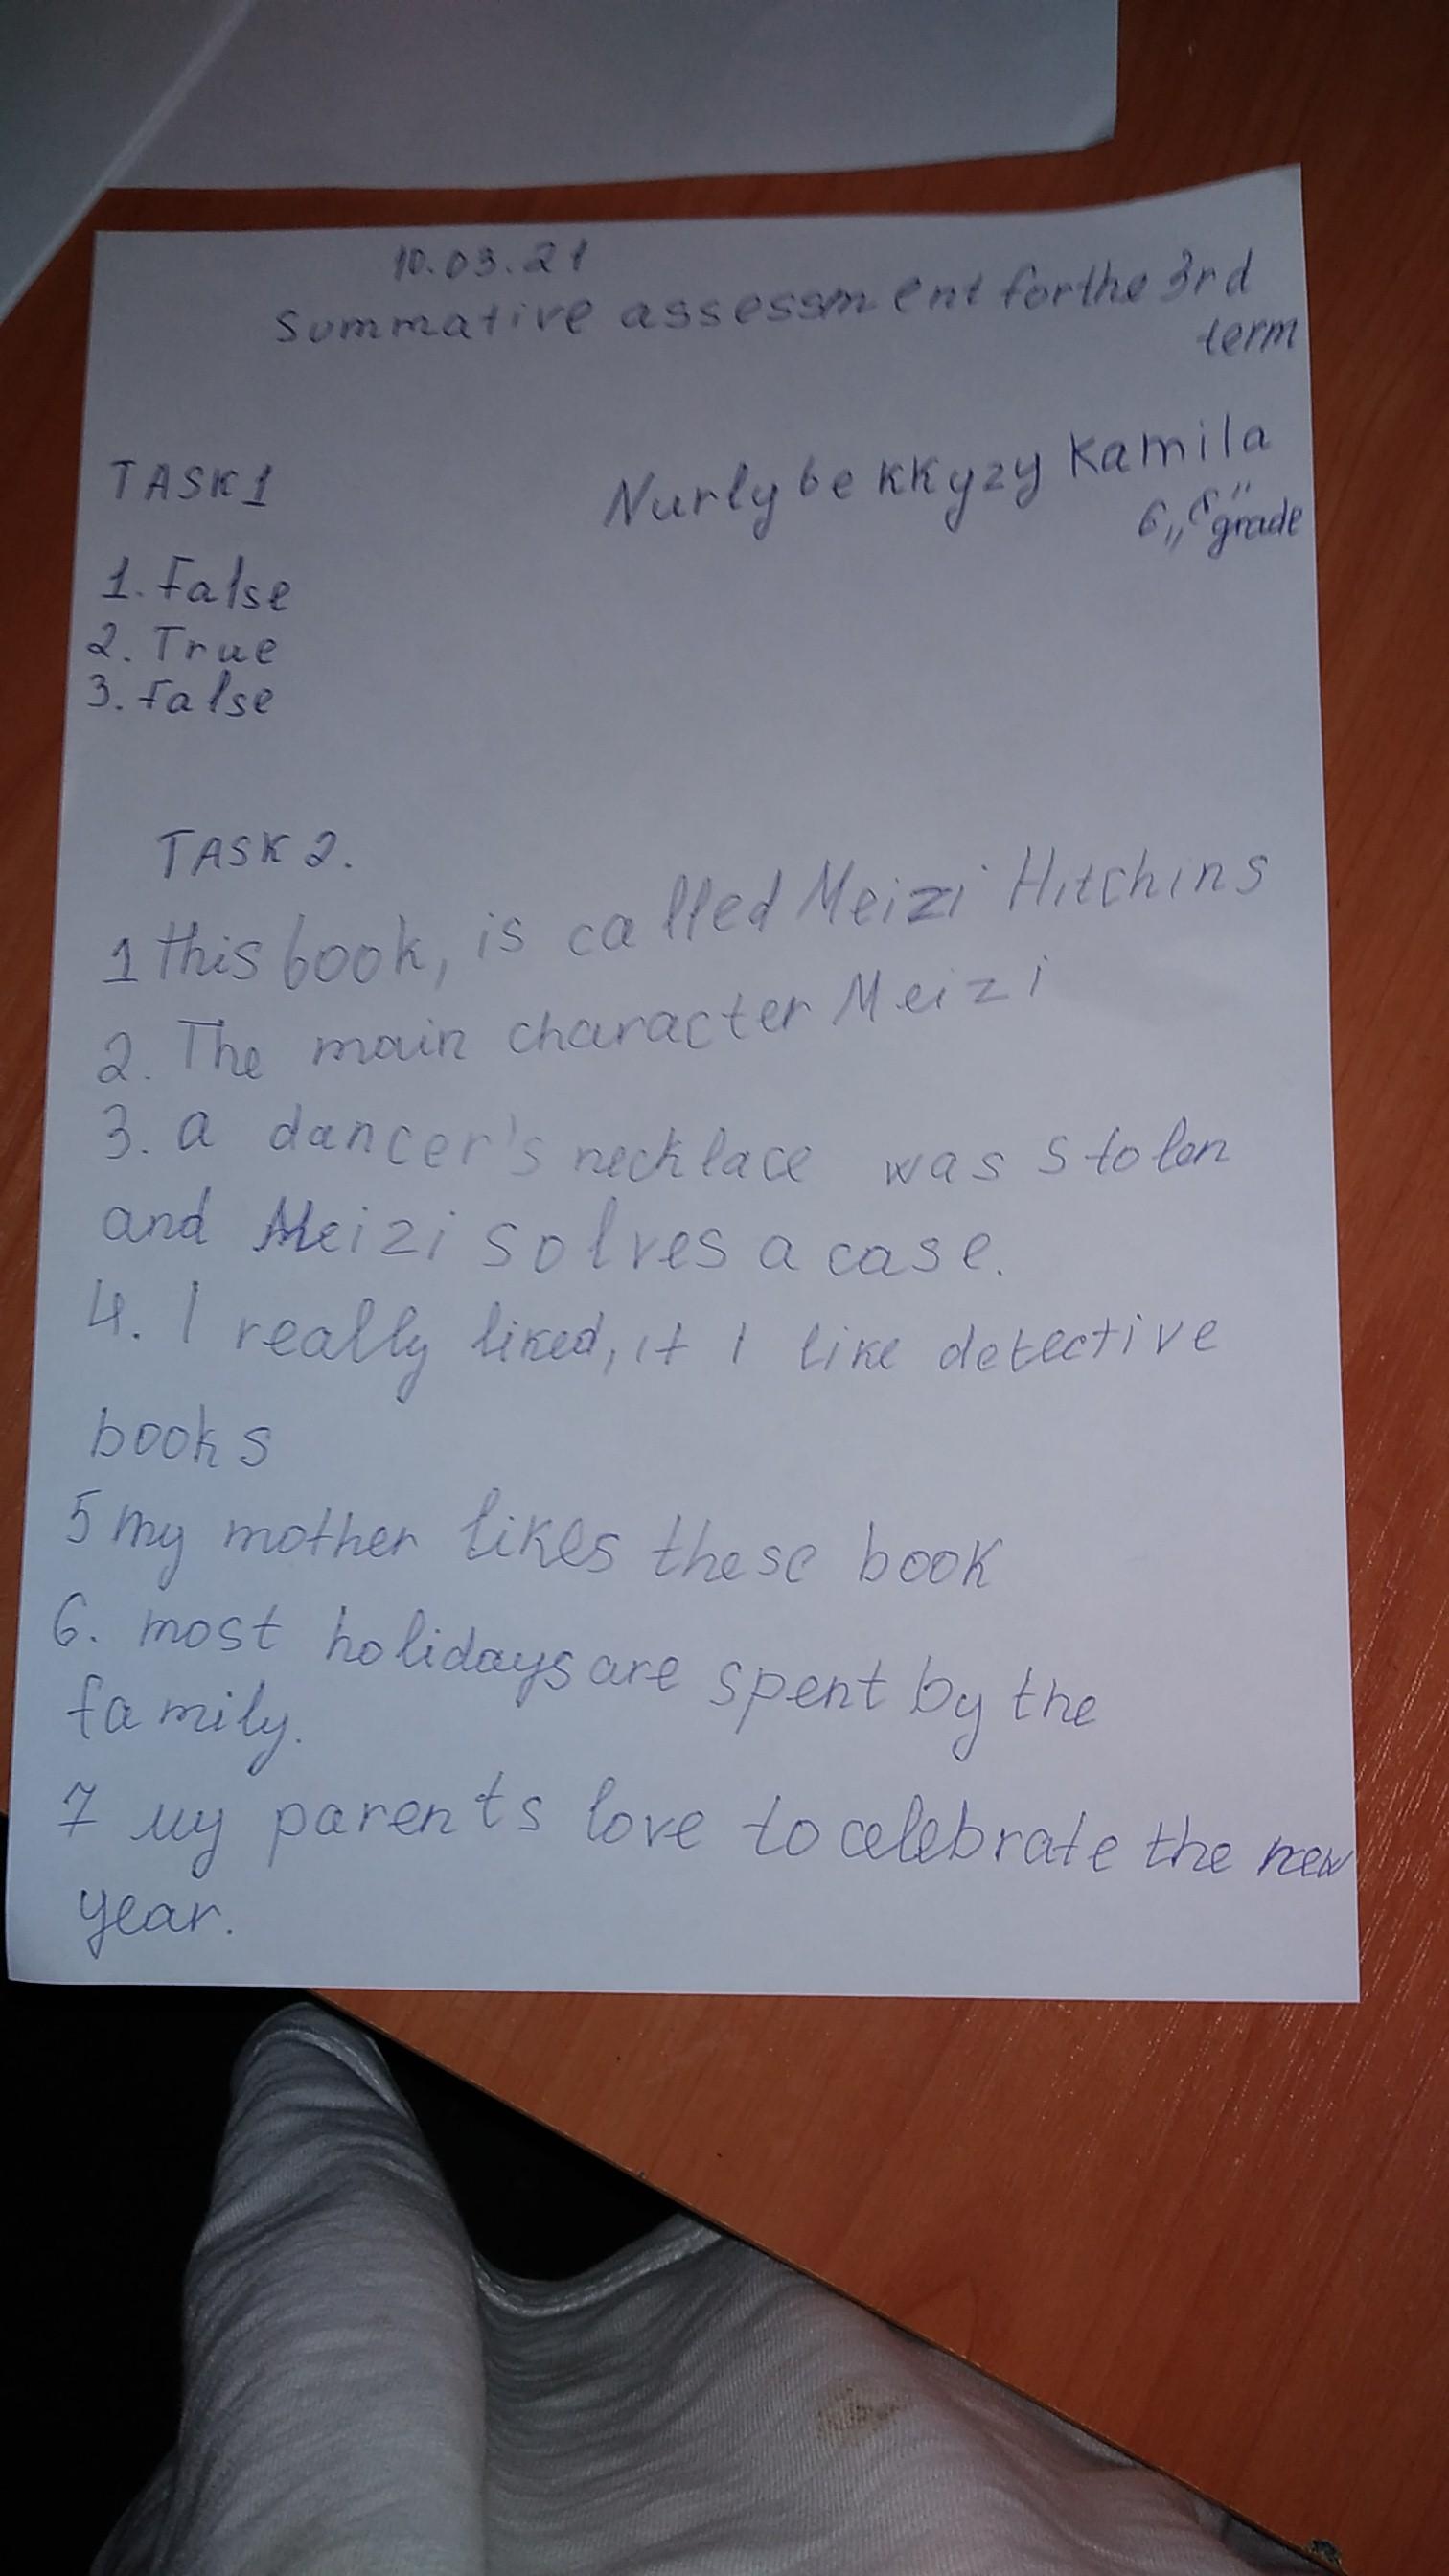 10.03.21
Summative assessment for the 3rd
term
TASK 1
Nurlybekkyzy Kamila
6 grade
1. False
2. True
3. False
TASK 2.
1 this book, is called Meizi Hitchins
2. The main character Meizi
3. a dancer's necklace was stolen
and Meizi solves a case.
4. I really liked, it I like detective
books
5 my mother likes these book
6. most holidays are spent by the
family.
7 my parents love to celebrate the new
year.